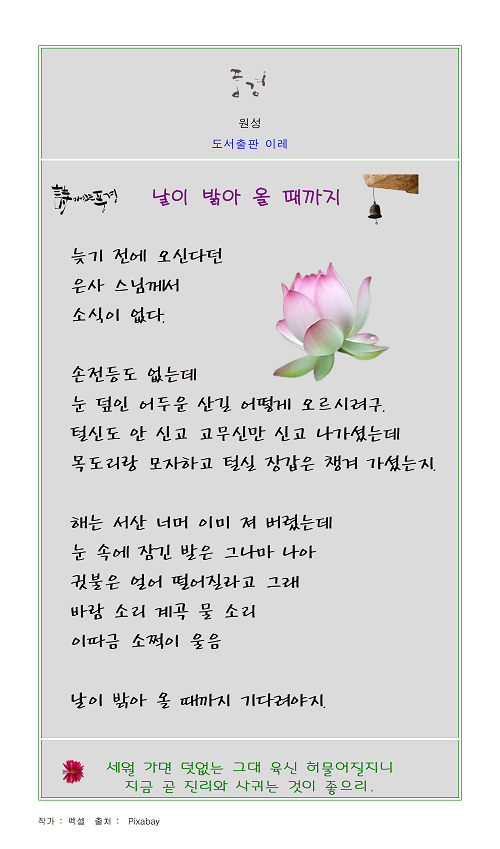 풍경
원성
도서출판 이레
詩가있는풍경
날이 밝아 올 때까지
늦기 전에 오신다던
은사 스님께서
소식이 없다.
손전등도 없는데
눈 덮인 어두운 산길 어떻게 오르시려구.
털신도 안 신고 고무신만 신고 나가셨는데
목도리랑 모자하고 털실 장갑은 챙겨 가셨는지.
해는 서산 너머 이미 져 버렸는데
눈 속에 잠긴 발은 그나마 나아
귓불은 얼어 떨어질라고 그래
바람 소리 계곡 물 소리
이따금 소쩍이 울음
날이 밝아 올 때까지 기다려야지.
세월 가면 덧없는 그대 육신 허물어질지니
지금 곧 진리와 사귀는 것이 좋으리.
작가 : 펙셀 출처 : Pixabay